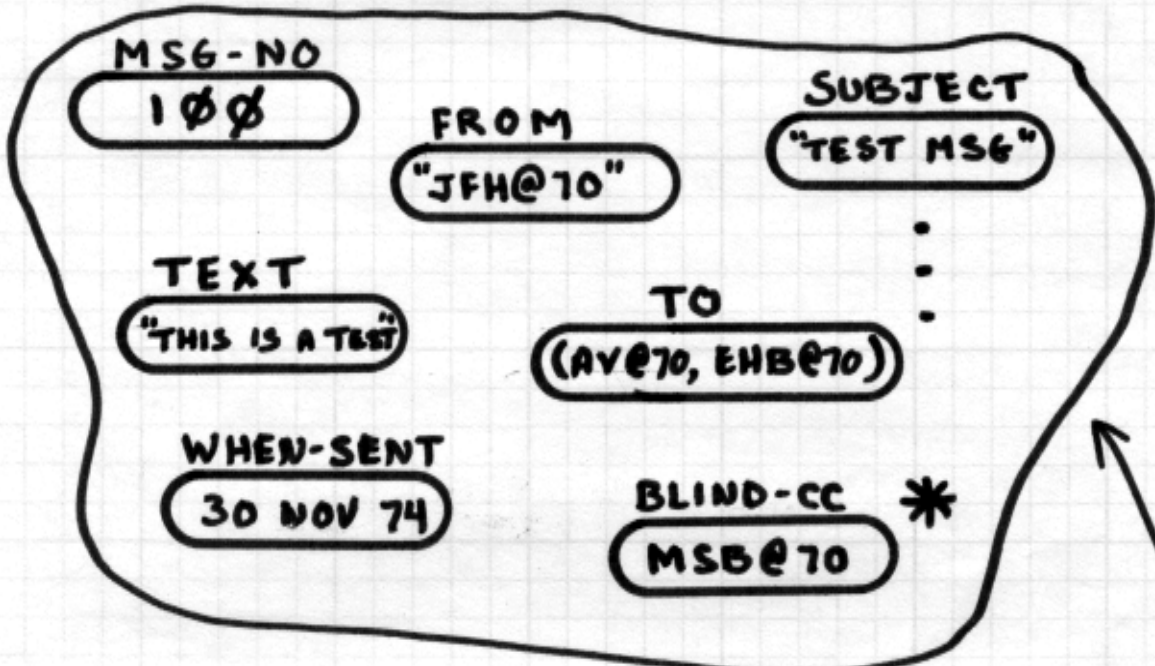 MSG-NO
1ØØ
FROM
"JFH@70"
SUBJECT
"TEST MSG"
TEXT
"THIS IS A TEST"
TO
(AV@70, EHB@70)
WHEN-SENT
30 NOV 74
BLIND-CC *
MSB@70